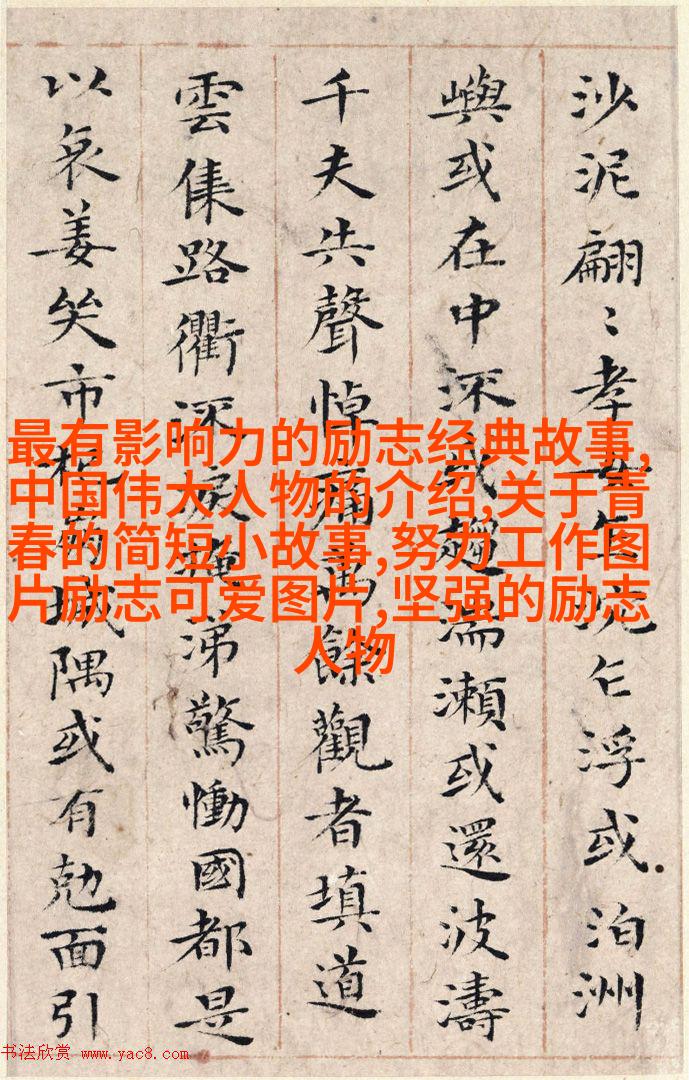 沙泥翩〻孝女乍沉乍浮或泊洲
嶼或在中流或趨湍瀬或還波濤
千夫共聲悼痛萬餘觀者填道
雲集路衢流淚掩涕驚慟國都是
以哀姜哭市杞崩城隅或有剋面引
最有影响力的励志经典故事,
中国伟大人物的介绍,关于青
春的简短小故事,努力工作图
片励志可爱图片,坚强的励志
人物
书法欣赏 www.yac8.com